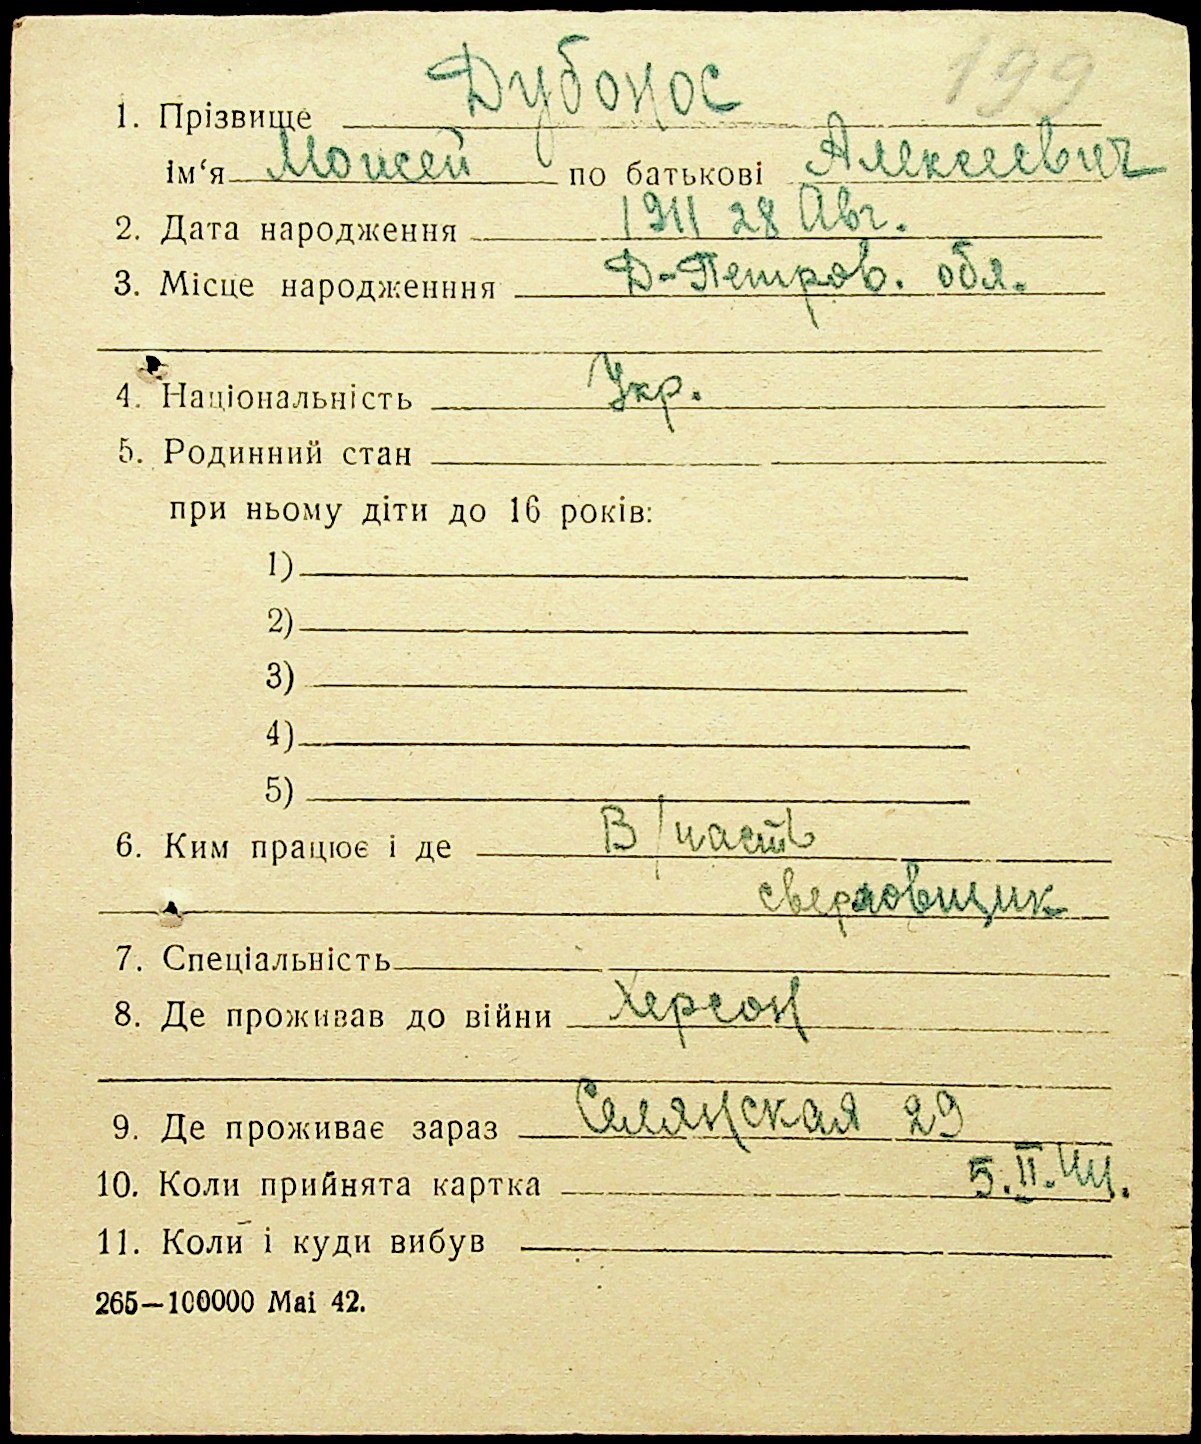 199
1. Прізвище Дубонос
ім‘я Моисей по батькові Алексеевич
2. Дата народження 1911 28 Авг.
3. Місце народженння Д-Петров. обл.
4. Національність Укр.
5. Родинний стан
при ньому діти до 16 років:
1)
2)
3)
4)
5)
6. Ким працює і де В/часть
сверловщик
7. Спеціальність
8. Де проживав до війни Херсон
9. Де проживає зараз Селянская 29
10. Коли прийнята картка 5.II.44.
11. Коли і куди вибув
265—100000 Mai 42.